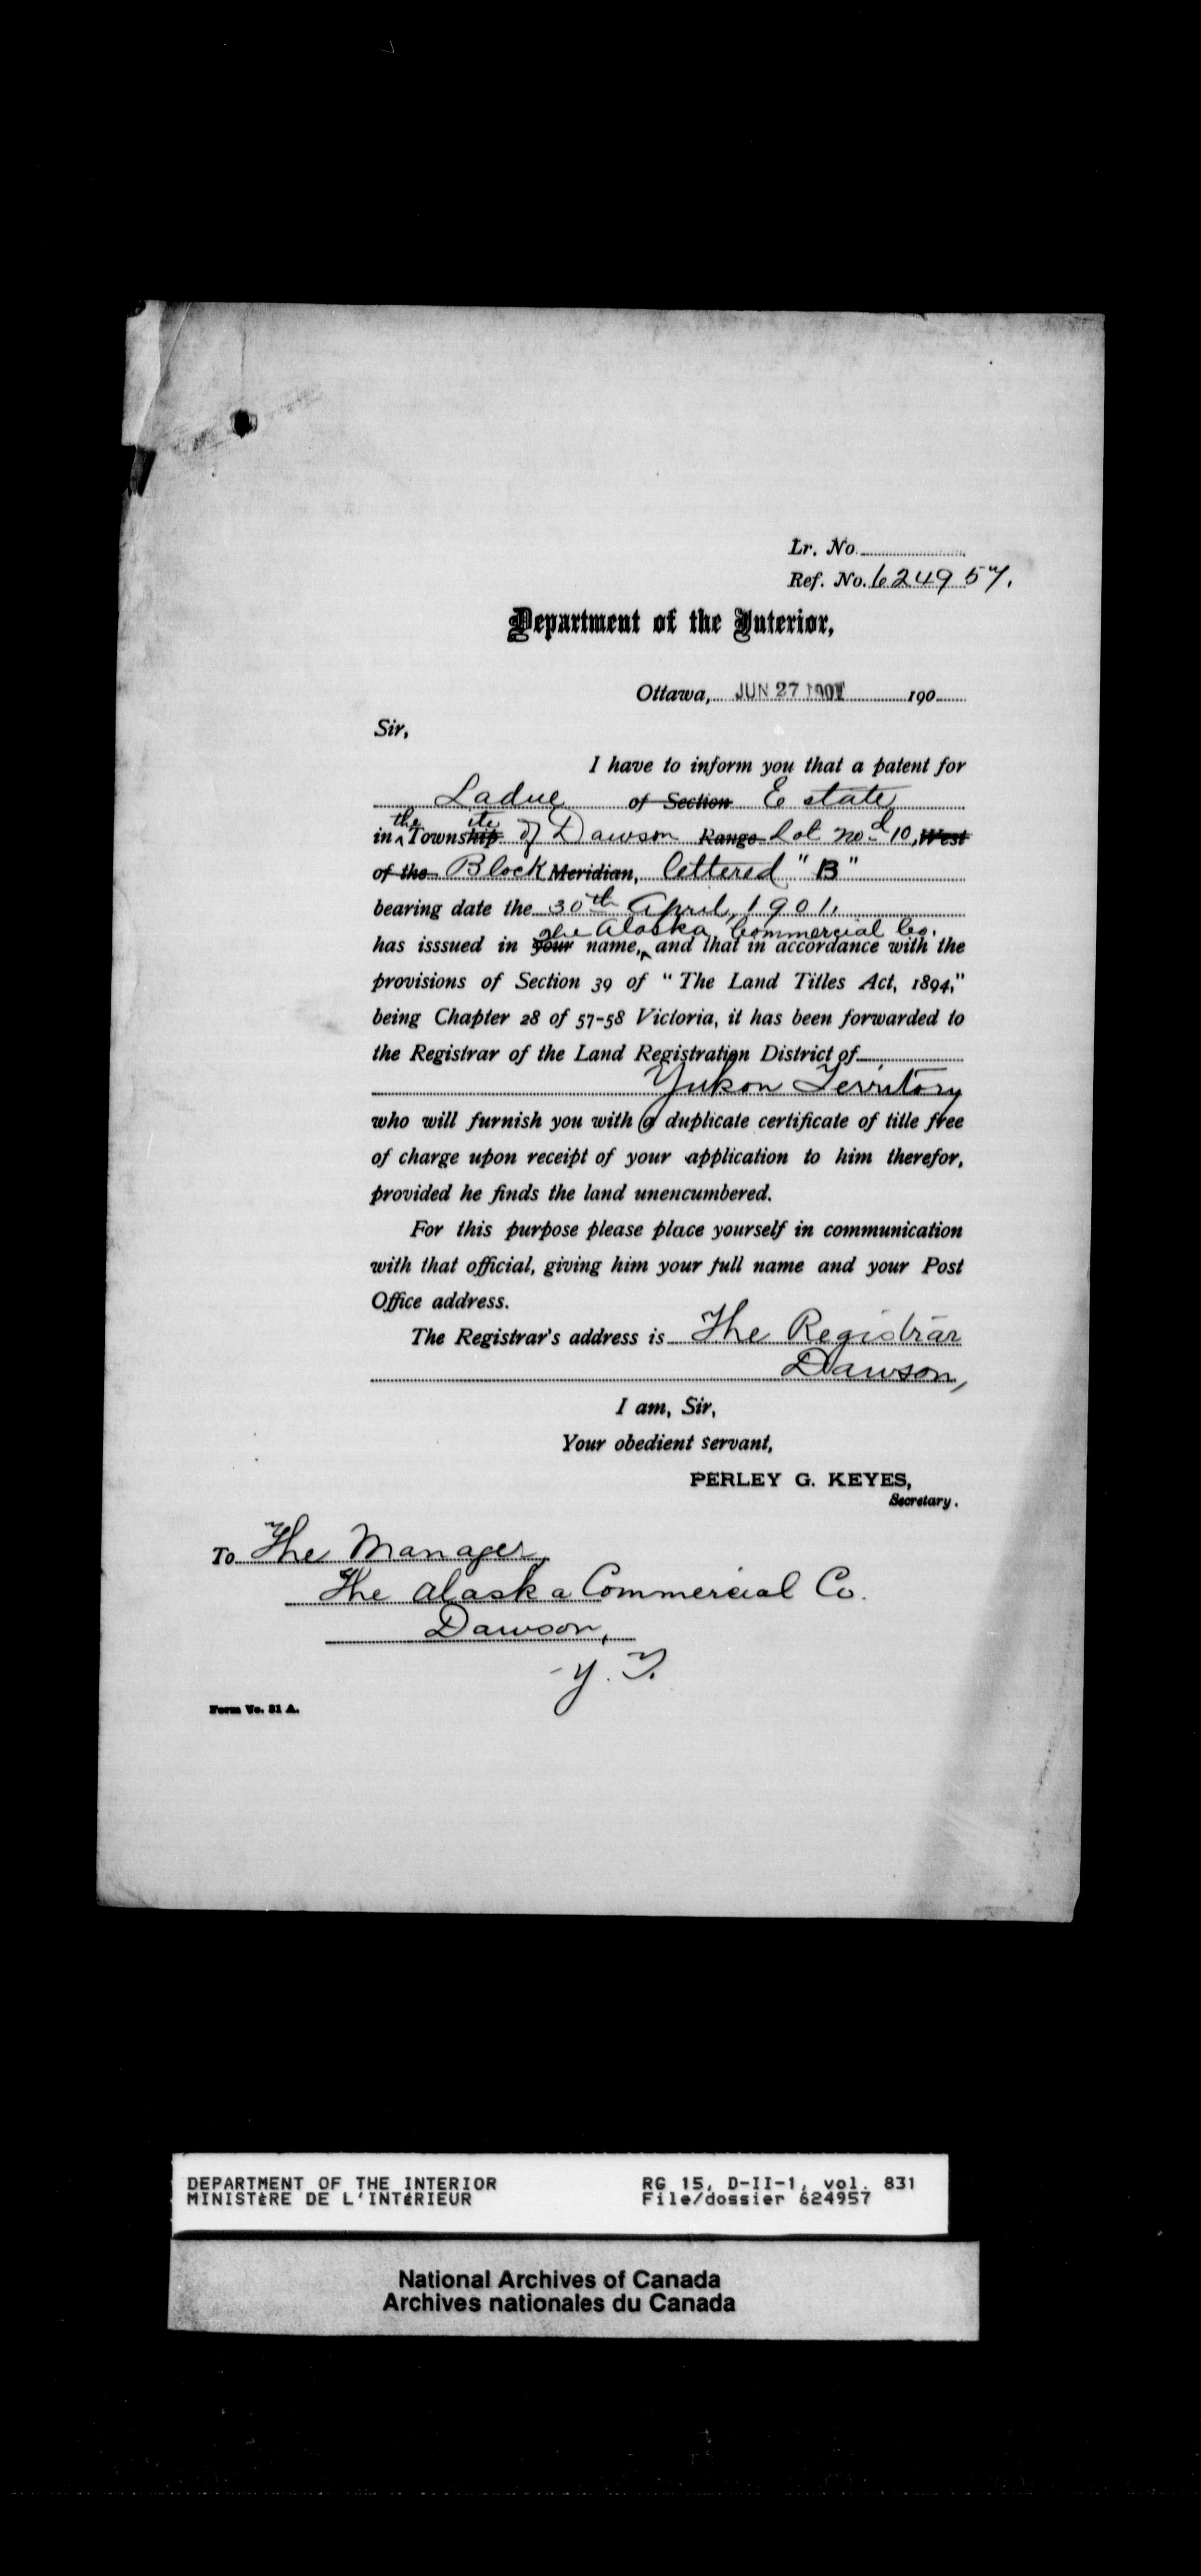 Lr. No.
Ref. No. 624957.
Department of the Interior,
Ottawa, JUN 27 1901 190
Sir,
I have to inform you that a patent for
Ladue of Section Estate
in the Township ite of Dawson Range Lot no 10, West
of the Block Meridian, lettered "B"
bearing date the 30th April, 1901,
The Alaska Commercial Co.
has isssued in your name, and that in accordance with the
provisions of Section 39 of "The Land Titles Act, 1894,"
being Chapter 28 of 57-58 Victoria, it has been forwarded to
the Registrar of the Land Registration District of
Yukon Territory
who will furnish you with a duplicate certificate of title free
of charge upon receipt of your application to him therefor,
provided he finds the land unencumbered.
For this purpose please place yourself in communication
with that official, giving him your full name and your Post
Office address.
The Registrar's address is The Registrar
Dawson,
I am, Sir,
Your obedient servant,
PERLEY G. KEYES,
Secretary.
To The Manager,
The Alaska Commercial Co.
Dawson,
Y. T.
Form No. 31 A.
DEPARTMENT OF THE INTERIOR RG 15, D-II-1, vol. 831
MINISTÈRE DE L'INTÉRIEUR File/dossier 624957
National Archives of Canada
Archives nationales du Canada